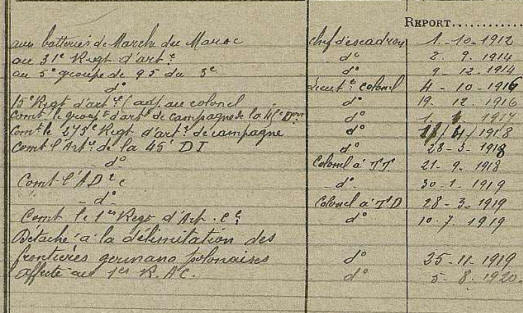 REPORT
aux batteries de Marche du Maroc chef d'escadron 1-10-1912
au 31e Regt d'artie d° 2.9.1914
au 5e groupe de 95 du 5e d° 9.12.1914
d° Lieutt colonel 4-10-1916
15e Regt d'artie (adj au colonel d° 19.12.1916
Comt le groupe d'art de campagne de la 41e Don d° 1. 1917
Comt le 273e Regt d'artie de campagne d° 1918
Comt l'Artie de la 45e DI d° 28-3-1918
d° Colonel à TT 21-9.1918
Comt l'AD d° 30-1-1919
d° Colonel à TD 28-3.1919
Comt le 1er Regt d'Art. Ce d° 10.7.1919
Détaché à la délimitation des
frontières germano polonaises d° 25-11-1919
affecté au 1er R.A.C. d° 5-8-1920